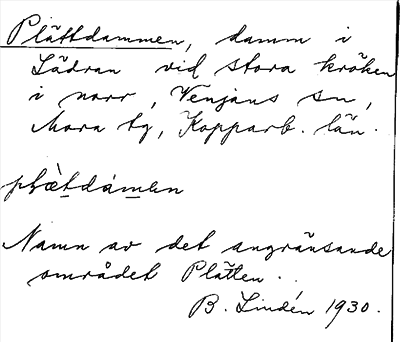 Plättdammen, damm i
Lädran vid stora kröken
i norr, Venjans sn,
Mora tg, Kopparb. län.
plæ̀tdámən
Namn av det angränsande
området Plätten.
B. Lindén 1930.